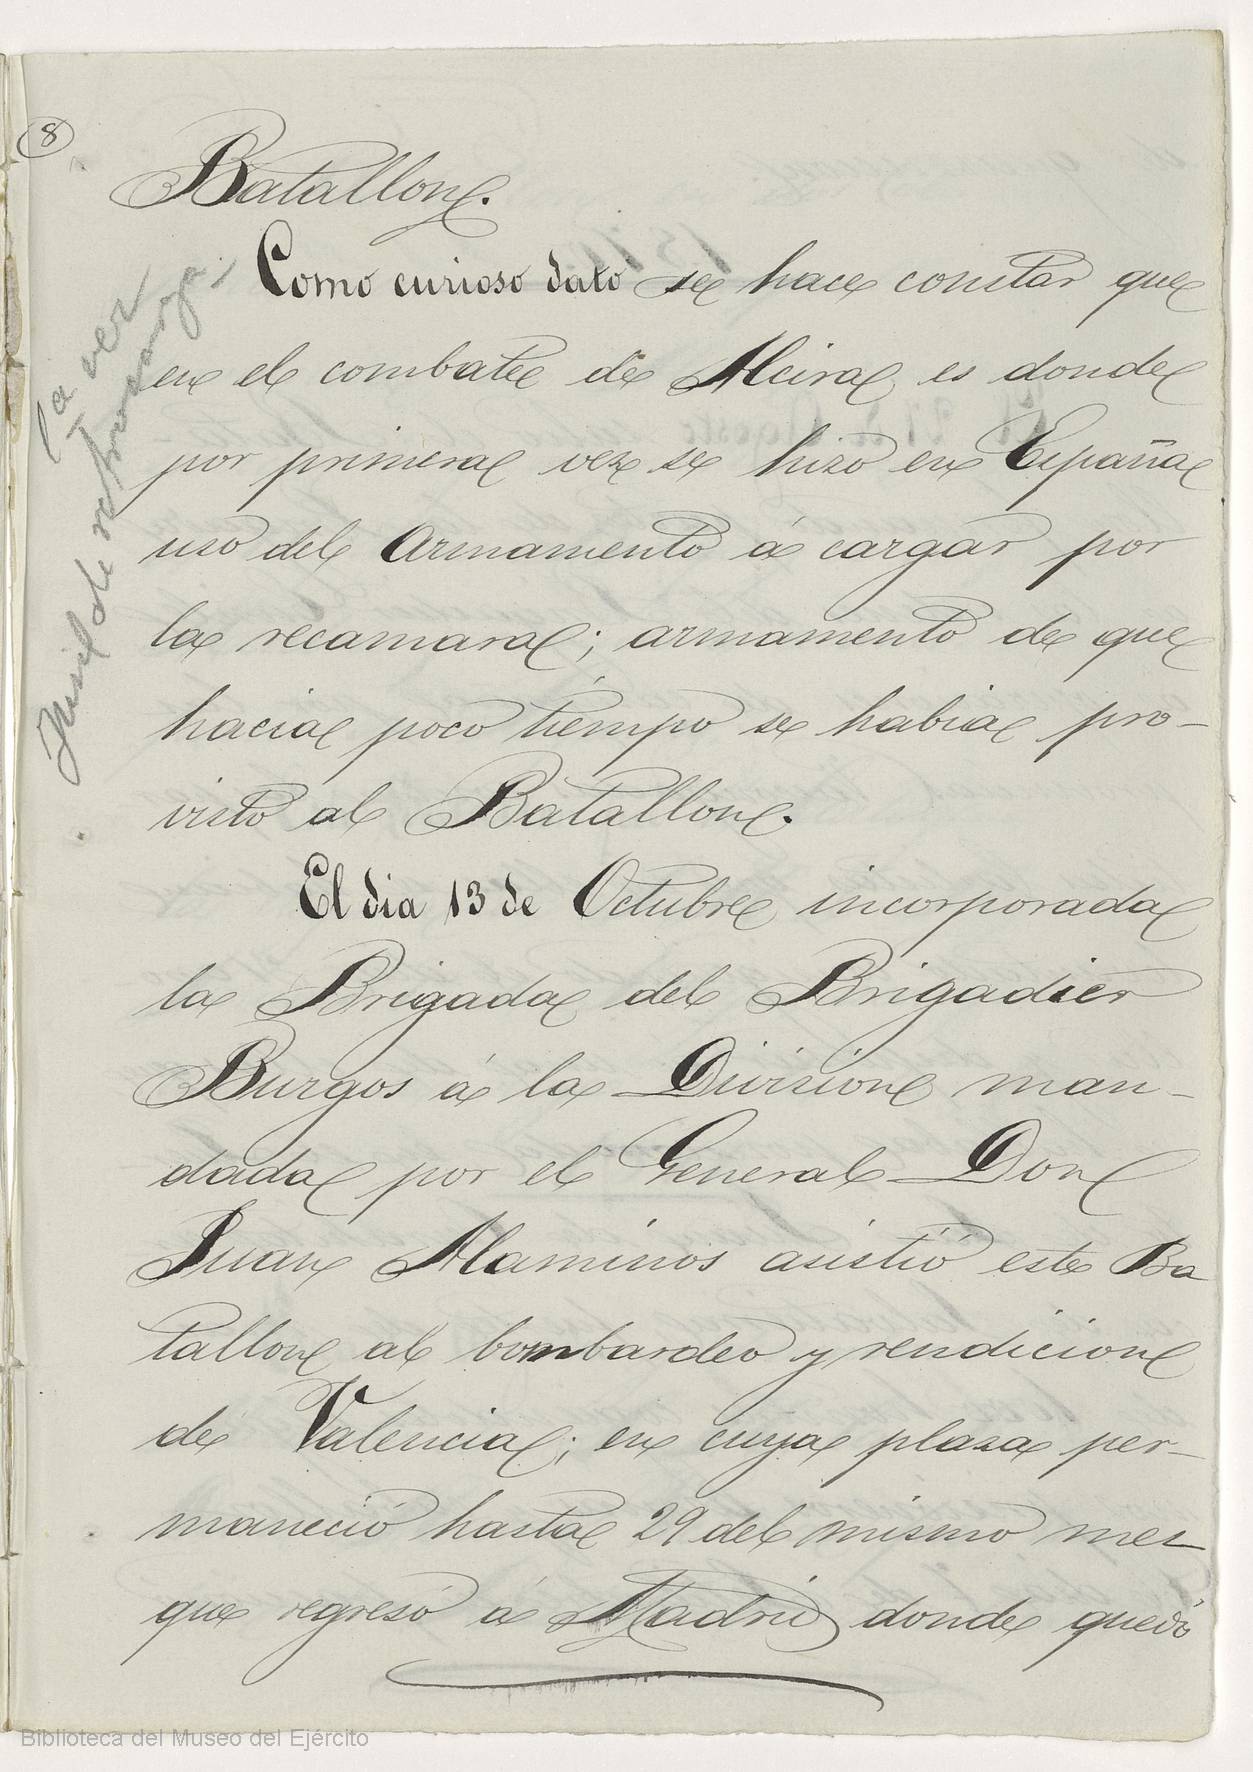 8
Batallon.
Como curioso dato se hace constar que
en el combate de Alcira es donde
por primera vez se hizo en España
uso del Armamento á cargar por
la recamara; armamento de que
hacia poco tiempo se habia pro-
visto al Batallon.
El dia 13 de Octubre incorporada
la Brigada del Brigadier
Burgos á la Division man-
dada por el General Don
Juan Alaminos asistió este Ba
tallon al bombardeo y rendicion
de Valencia; en cuya plaza per-
maneció hasta 29 del mismo mes
que regresó á Madrid donde quedó
1ª vez
fusil de retrocarga
Biblioteca del Museo del Ejército